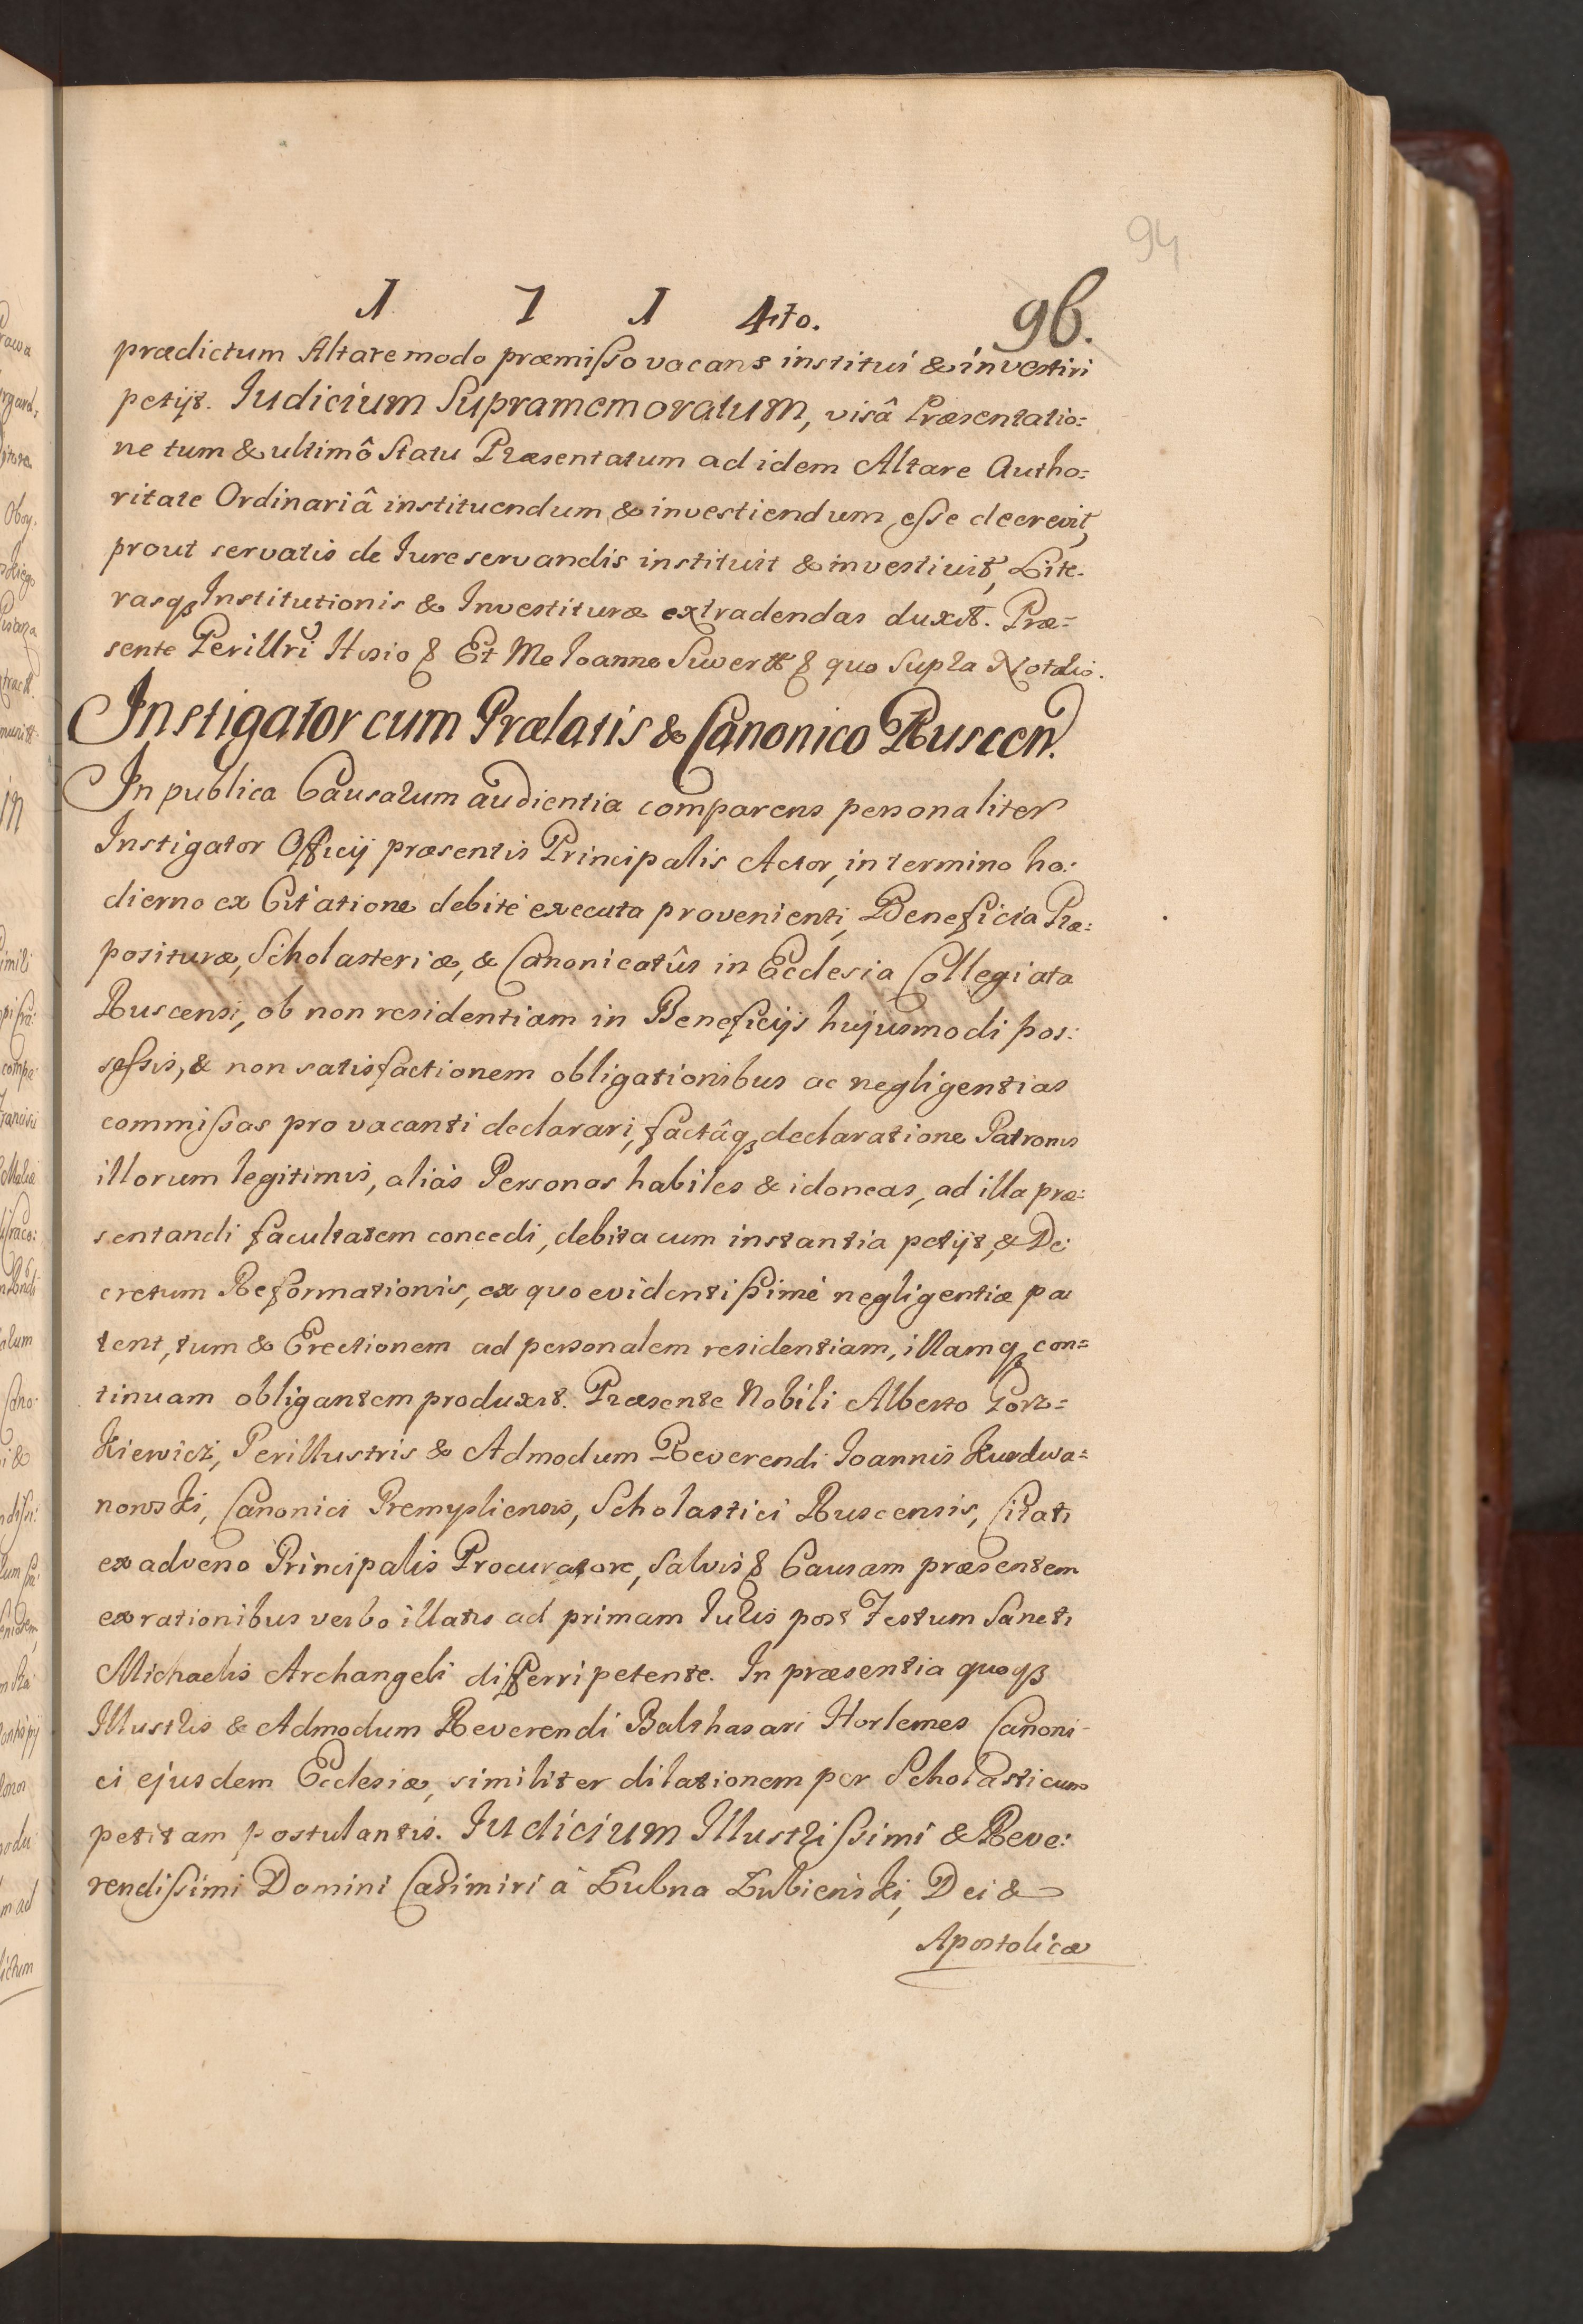 94
1 7 1 4to. 96.
prædictum Altare modo præmisso vacans institui & investiri
petijt. Iudicium Supramemoratum, visâ Præsentatio=
ne tum & ultimô Statu Præsentatum ad idem Altare Autho=
ritate Ordinariâ instituendum & investiendum esse decrevit,
prout servatis de Iure servandis instituit & investivit, Lite-
rasq3 Institutionis & Investituræ extradendas duxit. Præ=
sente Perillri Hisio & Et Me Ioanne Suwertt & quo Supra Notrio.
Instigator cum Prælatis & Canonico Ruscen.
In publica Causarum audientia comparens personaliter
Instigator Officij præsentis Principalis Actor, in termino ho:
dierno ex Citatione debitè executa provenienti, Beneficia Præ:
posituræ, Scholasteriæ, & Canonicatûs in Ecclesia Collegiata
Ruscensi, ob non residentiam in Beneficijs hujusmodi pos:
sessis, & non satisfactionem obligationibus ac negligentias
commissas pro vacanti declarari, factâq3 declaratione Patronis
illorum legitimis, aliàs Personas habiles & idoneas, ad illa præ:
sentandi facultatem concedi, debita cum instantia petijt, & De
cretum Reformationis, ex quo evidentissimè negligentiæ pa
tent, tum & Erectionem ad personalem residentiam, illamq3 con=
tinuam obligantem produxit. Præsente Nobili Alberto Gorz=
kiewicz, Perillustris & Admodum Reverendi Ioannis Kurdwa=
nowski, Canonici Premysliensis, Scholastici Ruscensis, Citati
ex adverso Principalis Procuratore, Salvis & Causam præsentem
ex rationibus verbo illatis ad primam Iuris post Festum Sancti
Michaelis Archangeli differri petente. In præsentia quoq3
Illustris & Admodum Reverendi Balthasari Horlemes Canoni-
ci ejusdem Ecclesiæ, similiter dilationem per Scholasticum
petitam postulantis. Iudicium Illustrissimi & Reve:
rendissimi Domini Casimiri à Łubna Łubieński, Dei &
Apostolicæ